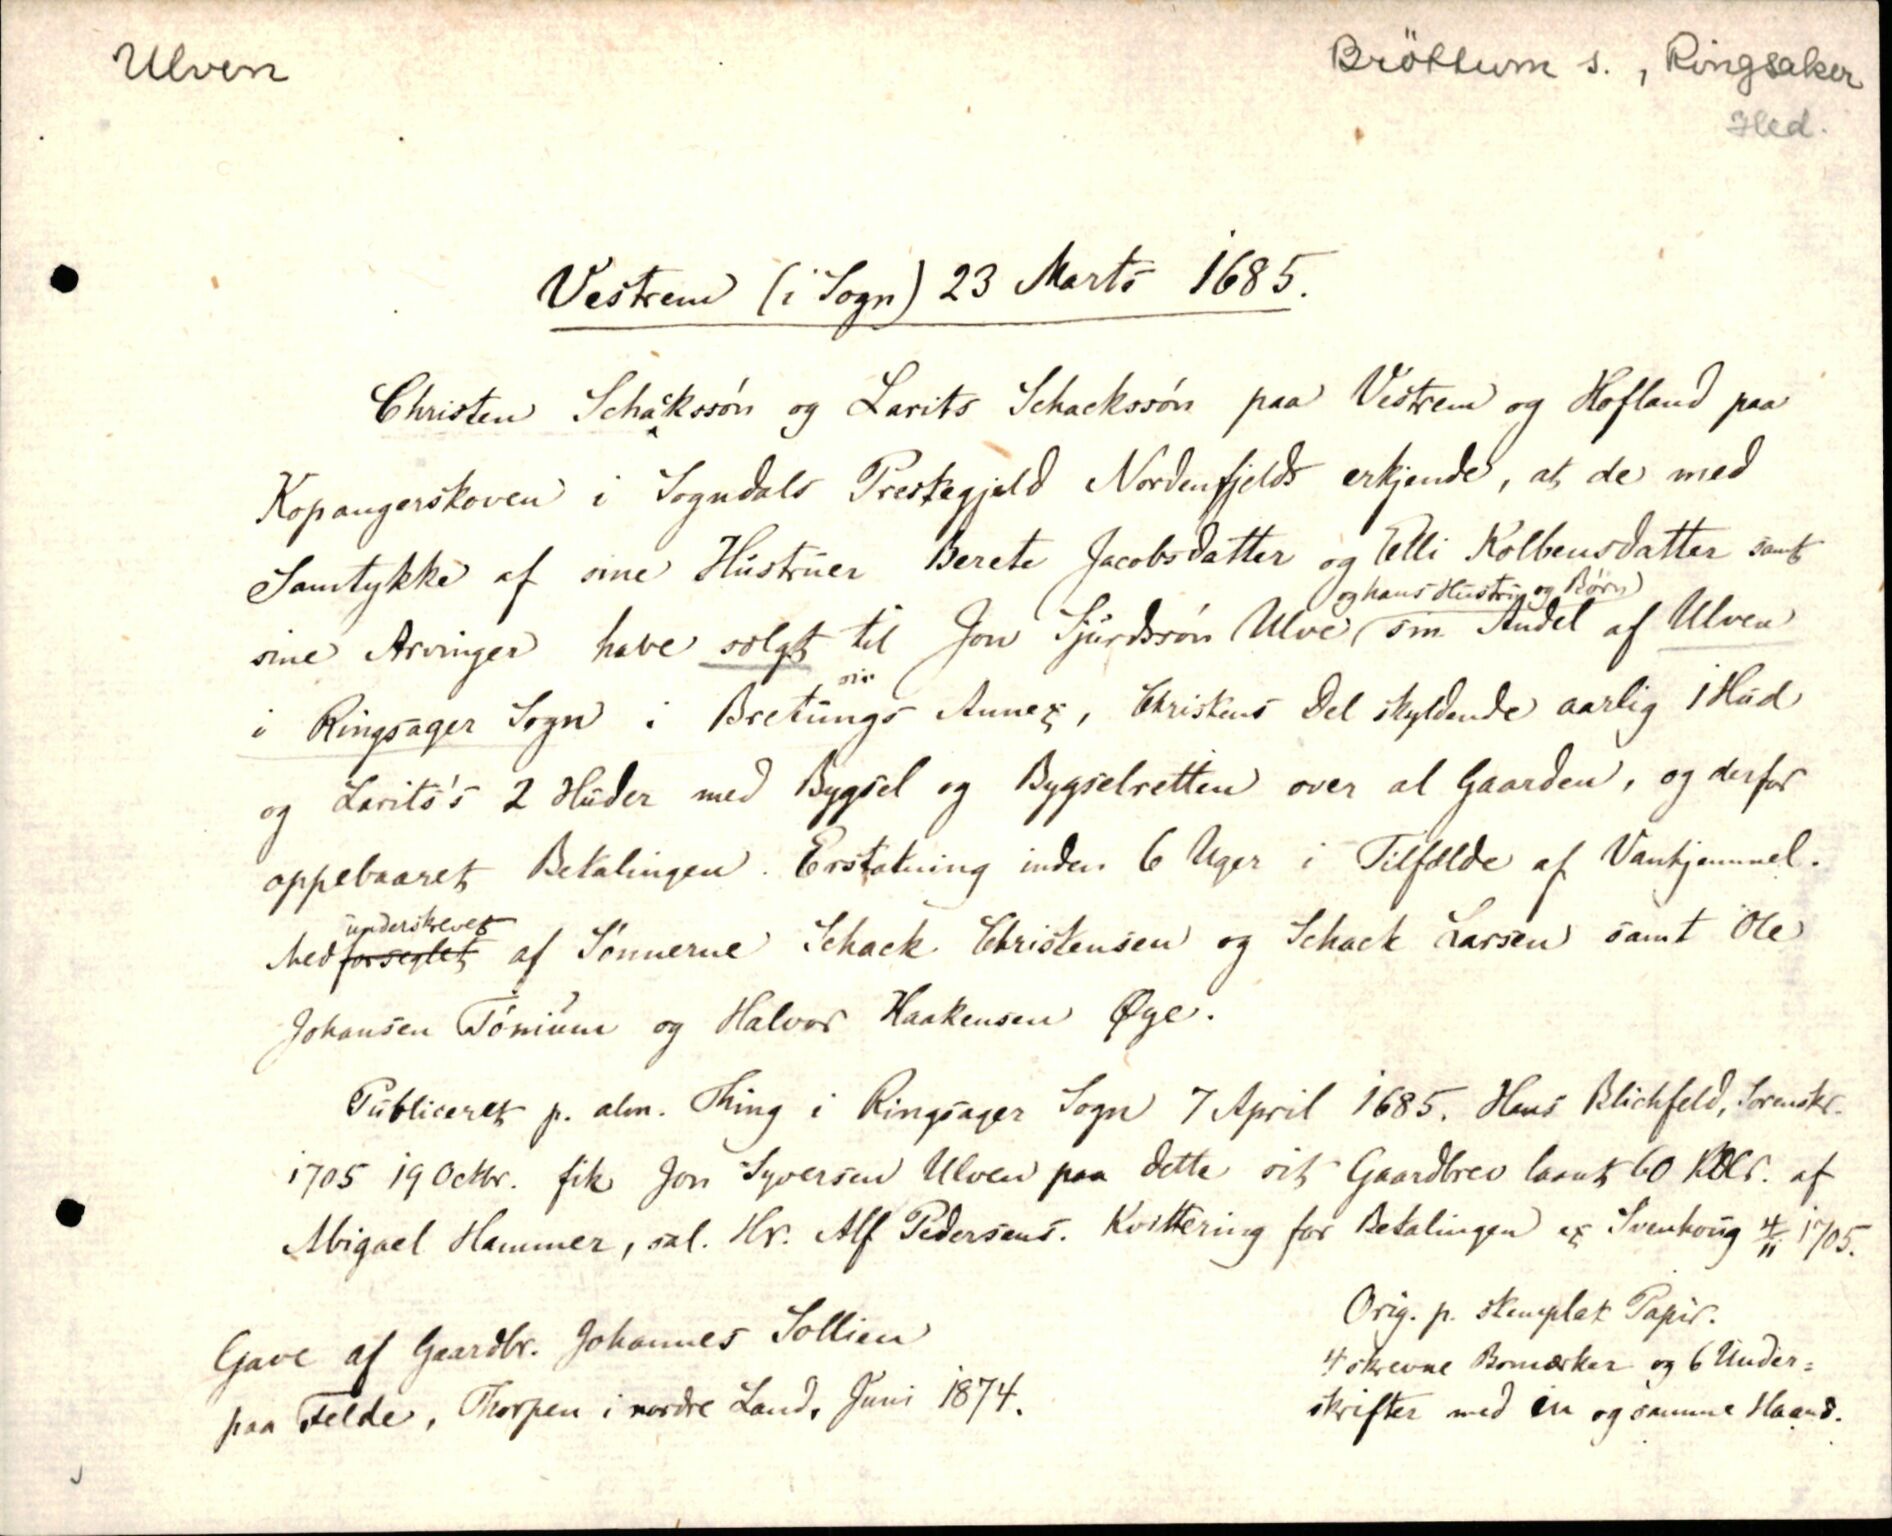 Ulven
Bröttum s., Ringsaker
Hed.
Vestrem (i Sogn) 23 Marts 1685.
Christen Schackssón og Larits Schackssón paa Vestrem og Hofland paa
Kopangerskoven i Sogndals Prestegjeld Nordenfjelds erkjende, at de med
Samtykke af sine Hustruer Berete Jacobsdatter og Elli Kolbensdatter samt
og hans Hustru og Børn
sine Arvinger have solgt til Jon Sjurdssón Ulve sin Andel af Ulven
i Ringsager Sogn i Bretungs Annex, Christens Del skyldende aarlig 1 Hud
og Larits's 2 Huder med Bygsel og Bygselretten over al Gaarden, og derfor
oppebaaret Betalingen. Erstatning inden 6 Uger i Tilfælde af Vanhjemmel.
underskrevet
Medforseglet af Sønnerne Schack Christensen og Schack Larsen samt Ole
Johansen Tónium og Halvor Haakensen Øye.
Publiceret p. alm. Thing i Ringsager Sogn 7 April 1685. Hans Blichfeld, Sorenskr.
1705 19 Octbr. fik Jon Syversen Ulven paa dette sit Gaardbrev laant 60 Rdlr. af
Abigael Hammer, sal. Hr. Alf Pedersens. Kvittering for Betalingen ex Svenhoug 4/11 1705.
Orig. p. stemplet Papir.
4 skrevne Bomærker og 6 Under=
skrifter med én og samme Haand.
Gave af Gaardbr. Johannes Sollien
paa Felde, Thorpen i nordre Land, Juni 1874.